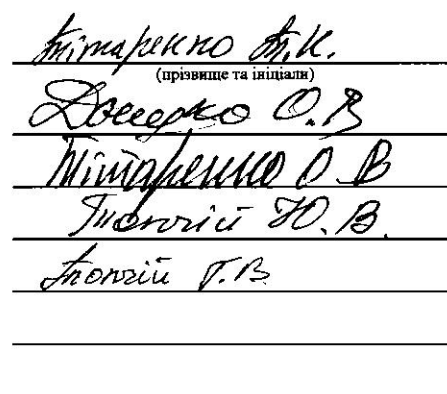 Тітаренко Т.К.
(прізвище та ініціали)
О.В
Тітаренко О В
Топчій Ю.В.
Топчій Г.В